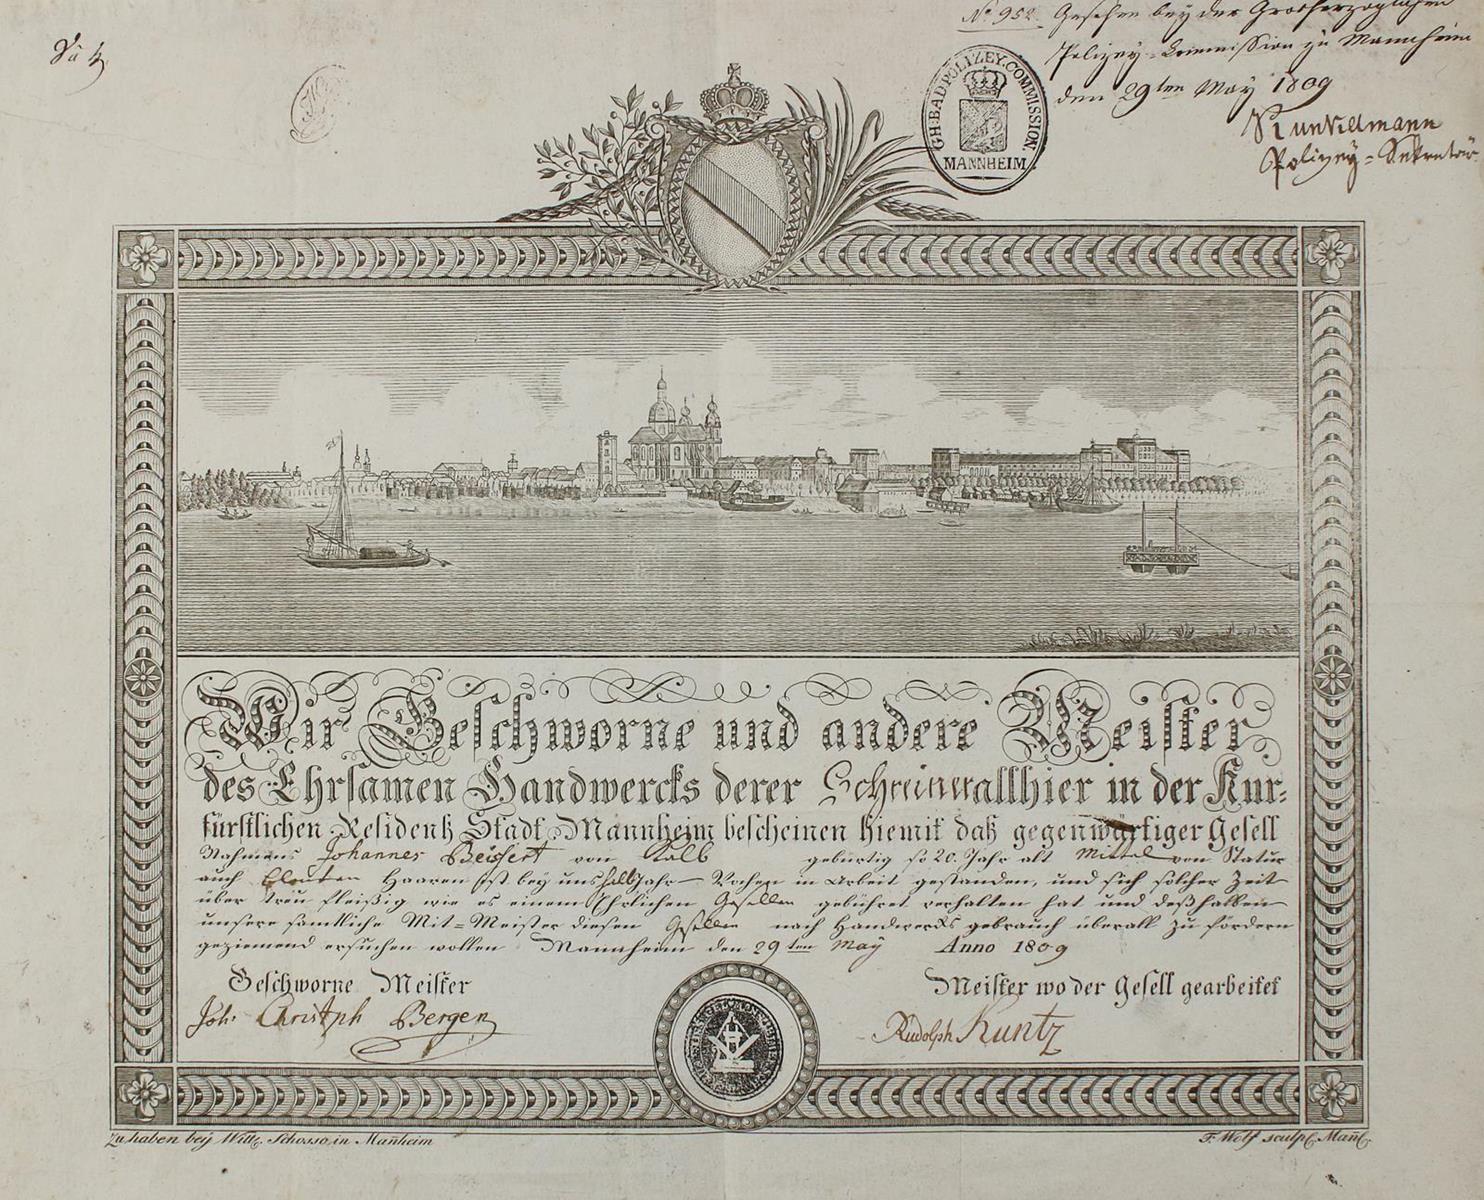 No. 952. Gesehen bey der Grosherzoglichen
Polizey-Commission zu Mannheim
den 29ten May 1809
Polizey-Sekretär
GH. BAD. POLIZEY. COMMISSION
MANNHEIM
Wir Geschworne und andere Meister
des Ehrsamen Handwercks derer Schreiner allhier in der Kur-
fürstlichen Residentz Stadt Mannheim bescheinen hiemit daß gegenwärtiger Gesell
Nahmens Johannes Beisfert von Kalb gebürtig so 20. Jahr alt Mittel von Statur
auch Haaren ist bey uns halb Jahr Wochen in Arbeit gestanden, und sich solcher Zeit
über treu fleißig wie es einem Ehrlichen Gesellen gebühret verhalten hat und deßhalben
unsere sämtliche Mit-Meister diesen Gesellen nach Handwercks gebrauch überall zu fördern
geziemend ersuchen wollen Mannheim den 29ten May Anno 1809
Geschworne Meister
Meister wo der Gesell gearbeitet
Joh. Christph Bergen
Rudolph Kuntz
zu haben bey Schosso, in Mañheim
F. Wolf sculps. Mañh.